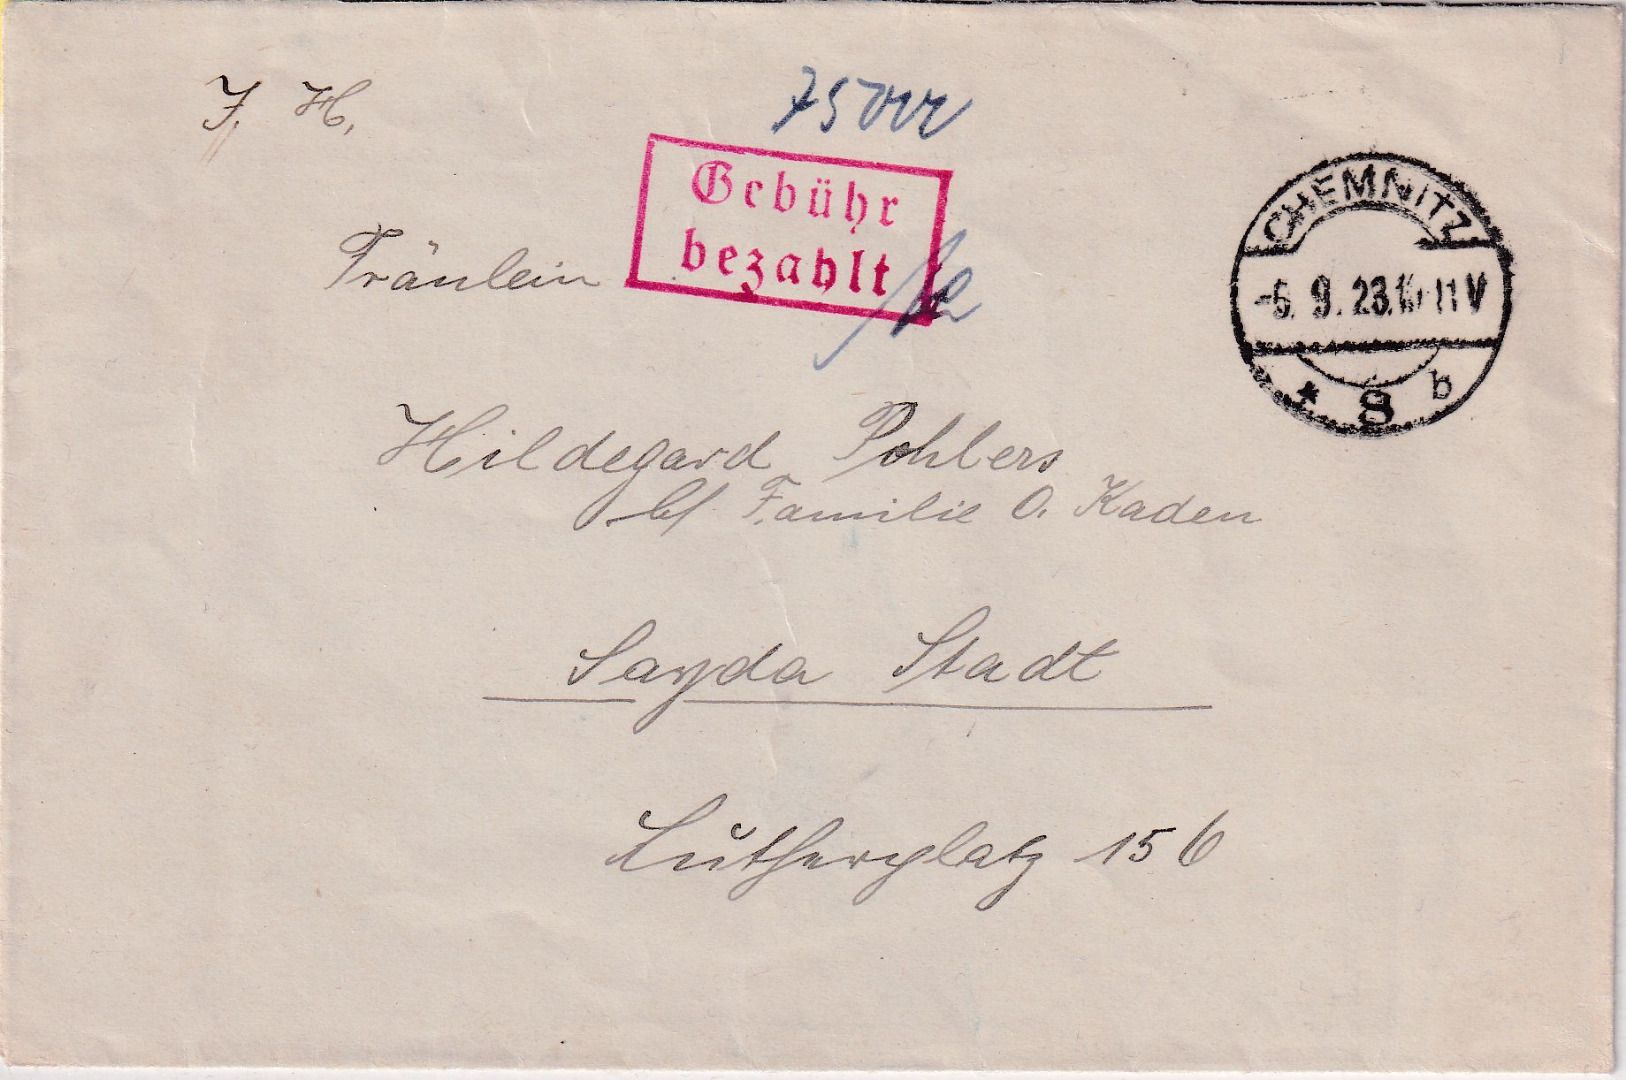 J. H.
75000
Gebühr
bezahlt
CHEMNITZ
-5. 9. 23. 10-11 V
* 8 b
Fräulein
Hildegard Pohlers
b/ Familie O. Kaden
Sayda Stadt
Lutherplatz 156